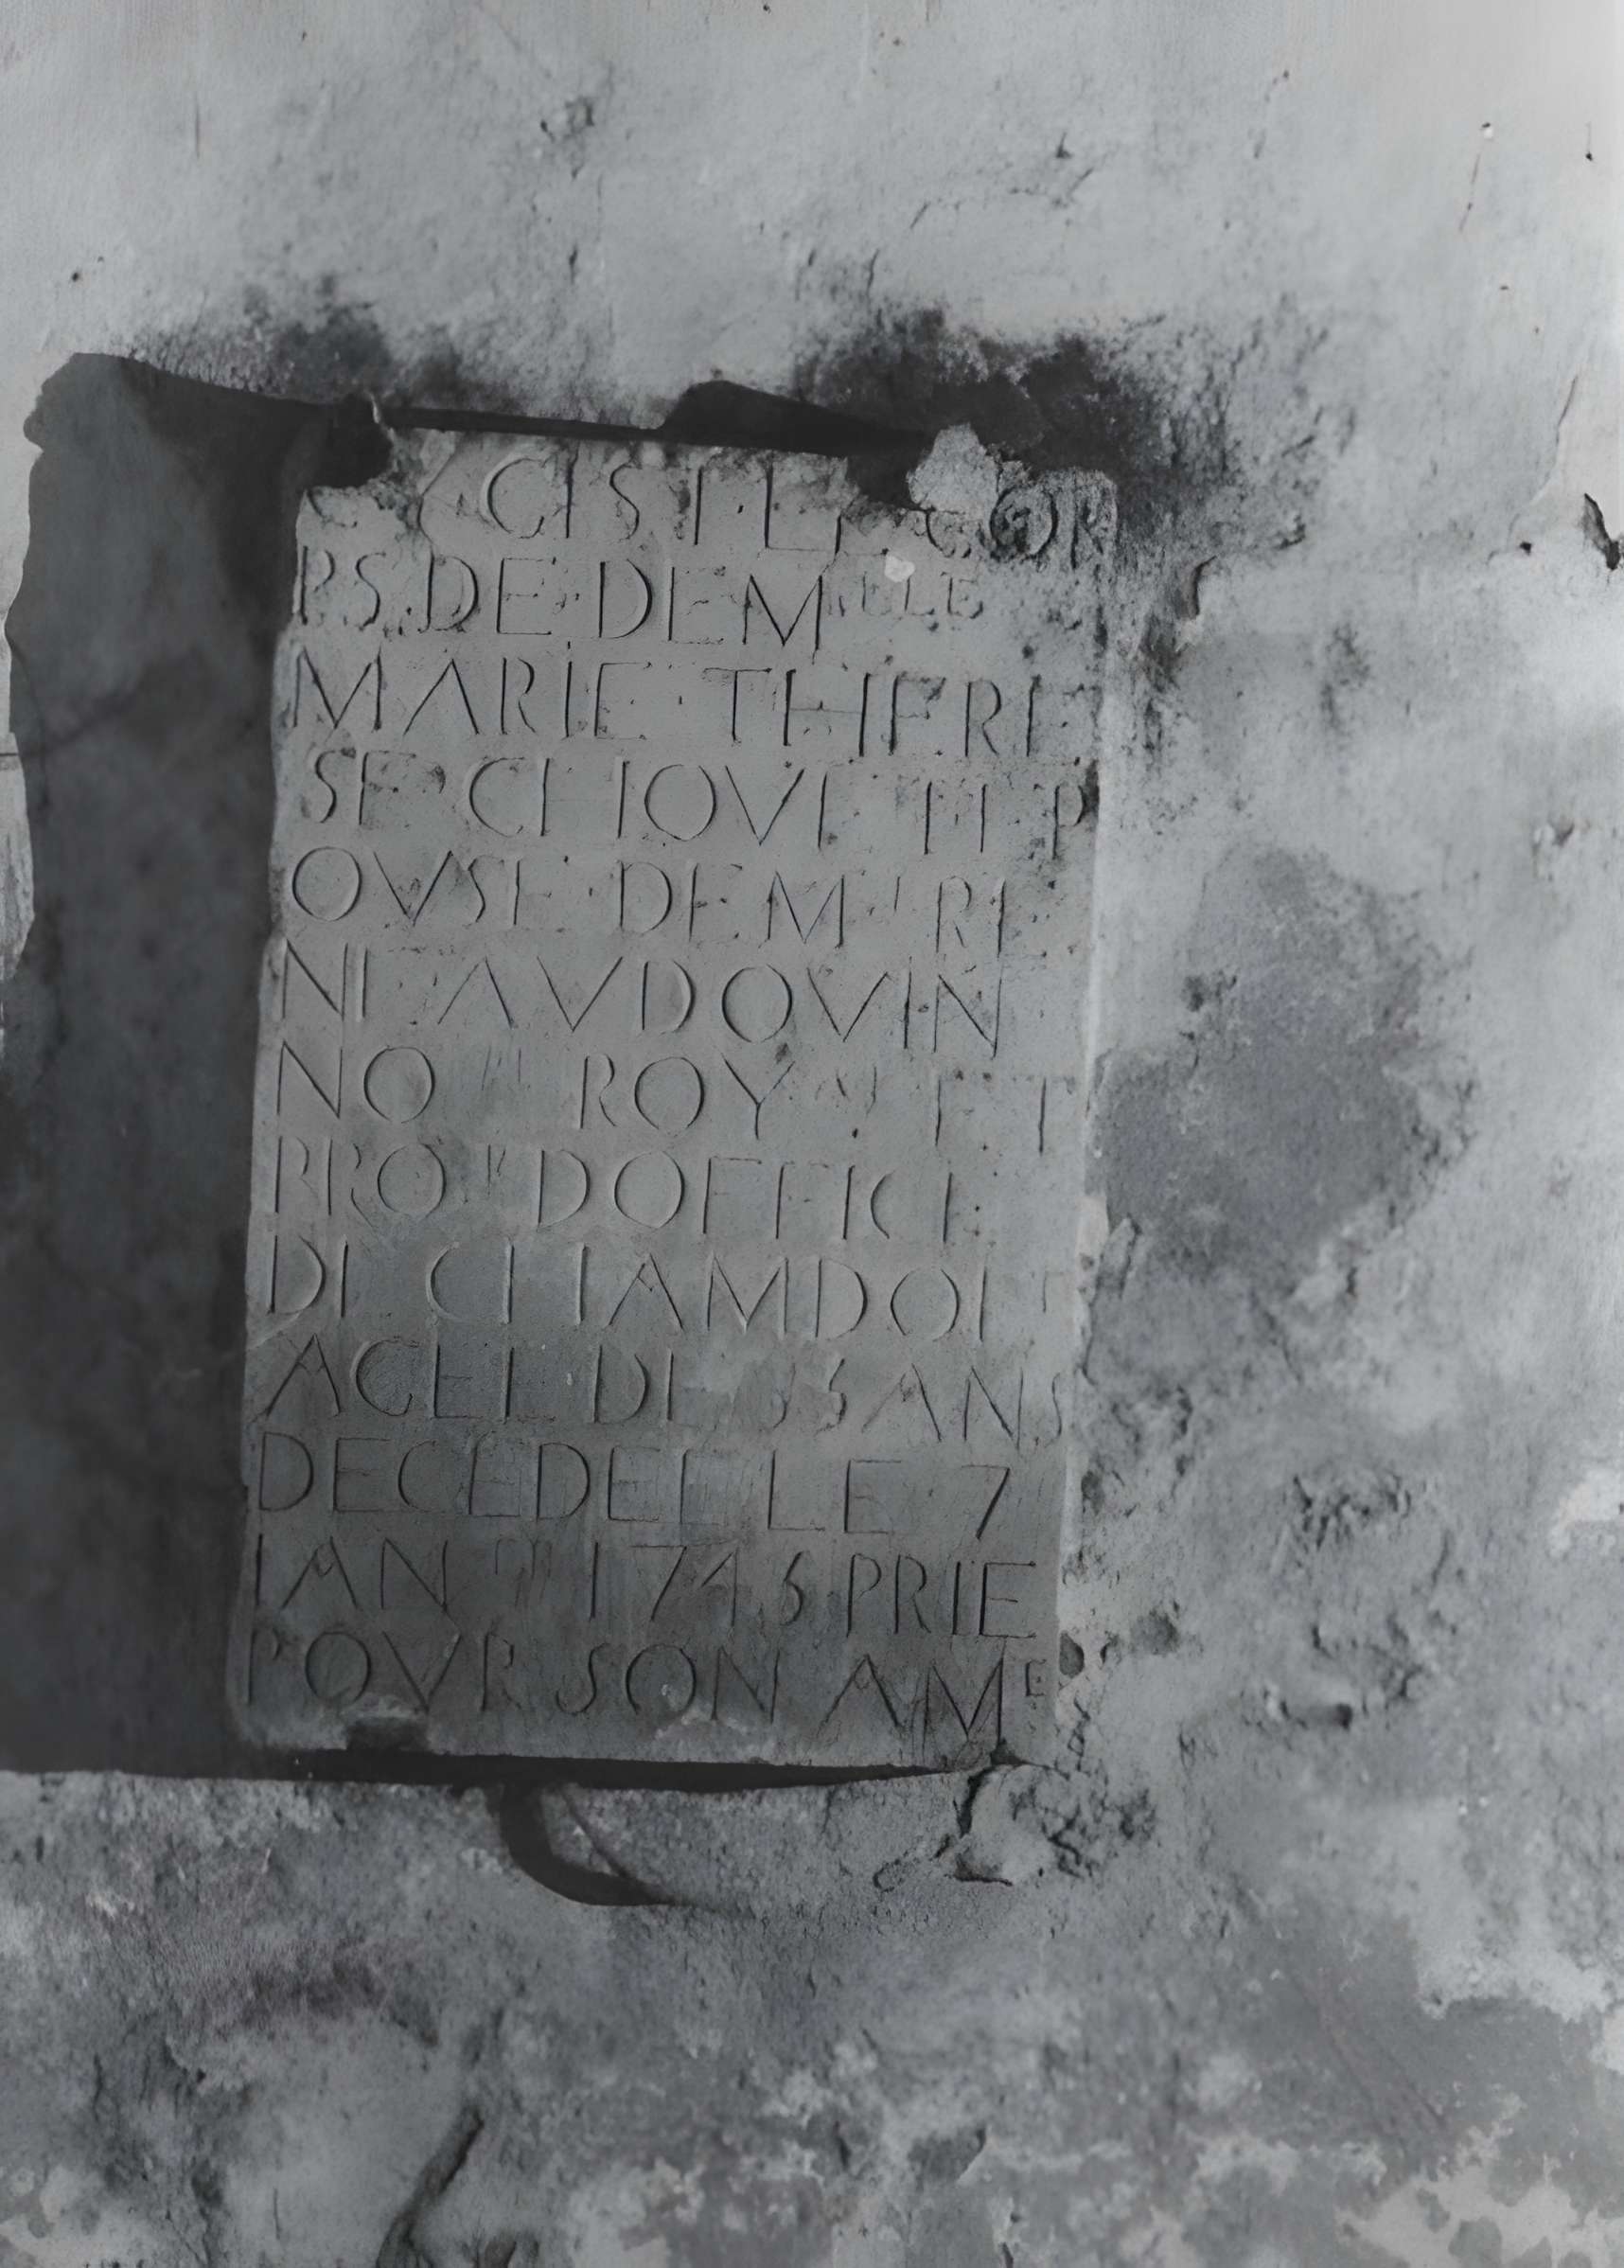 CY GIST LE COR
PS DE DEM^ELLE
MARIE THERE
SE CHOVET EP
OVSE DE M^E RE
NE AVDOVIN
NO^RE ROYAL ET
PRO^R DOFFICE
DE CHAMDOE
AGEE DE ANS
DECEDEE LE 7
IAN^ER PRIE
POVR SON AM^E